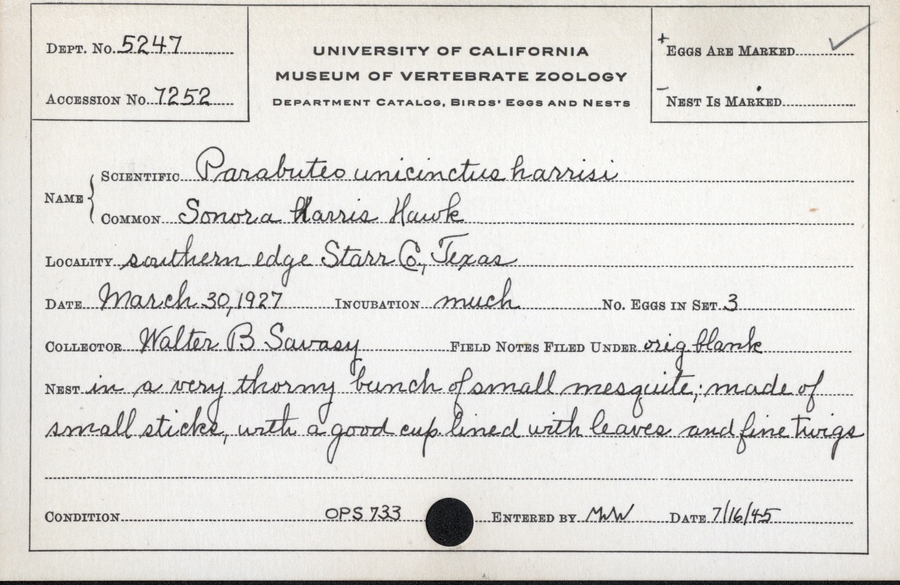 DEPT. NO. 5247
ACCESSION NO. 7252
UNIVERSITY OF CALIFORNIA
MUSEUM OF VERTEBRATE ZOOLOGY
DEPARTMENT CATALOG, BIRDS' EGGS AND NESTS
+ EGGS ARE MARKED ✓
- NEST IS MARKED
NAME { SCIENTIFIC Parabuteo unicinctus harrisi
COMMON Sonora Harris Hawk
LOCALITY southern edge Starr Co., Texas
DATE March 30, 1927 INCUBATION much NO. EGGS IN SET 3
COLLECTOR Walter B Savasy FIELD NOTES FILED UNDER orig blank
NEST in a very thorny bunch of small mesquite; made of
small sticks, with a good cup lined with leaves and fine twigs
CONDITION OPS 733 ENTERED BY MWW DATE 7/16/45